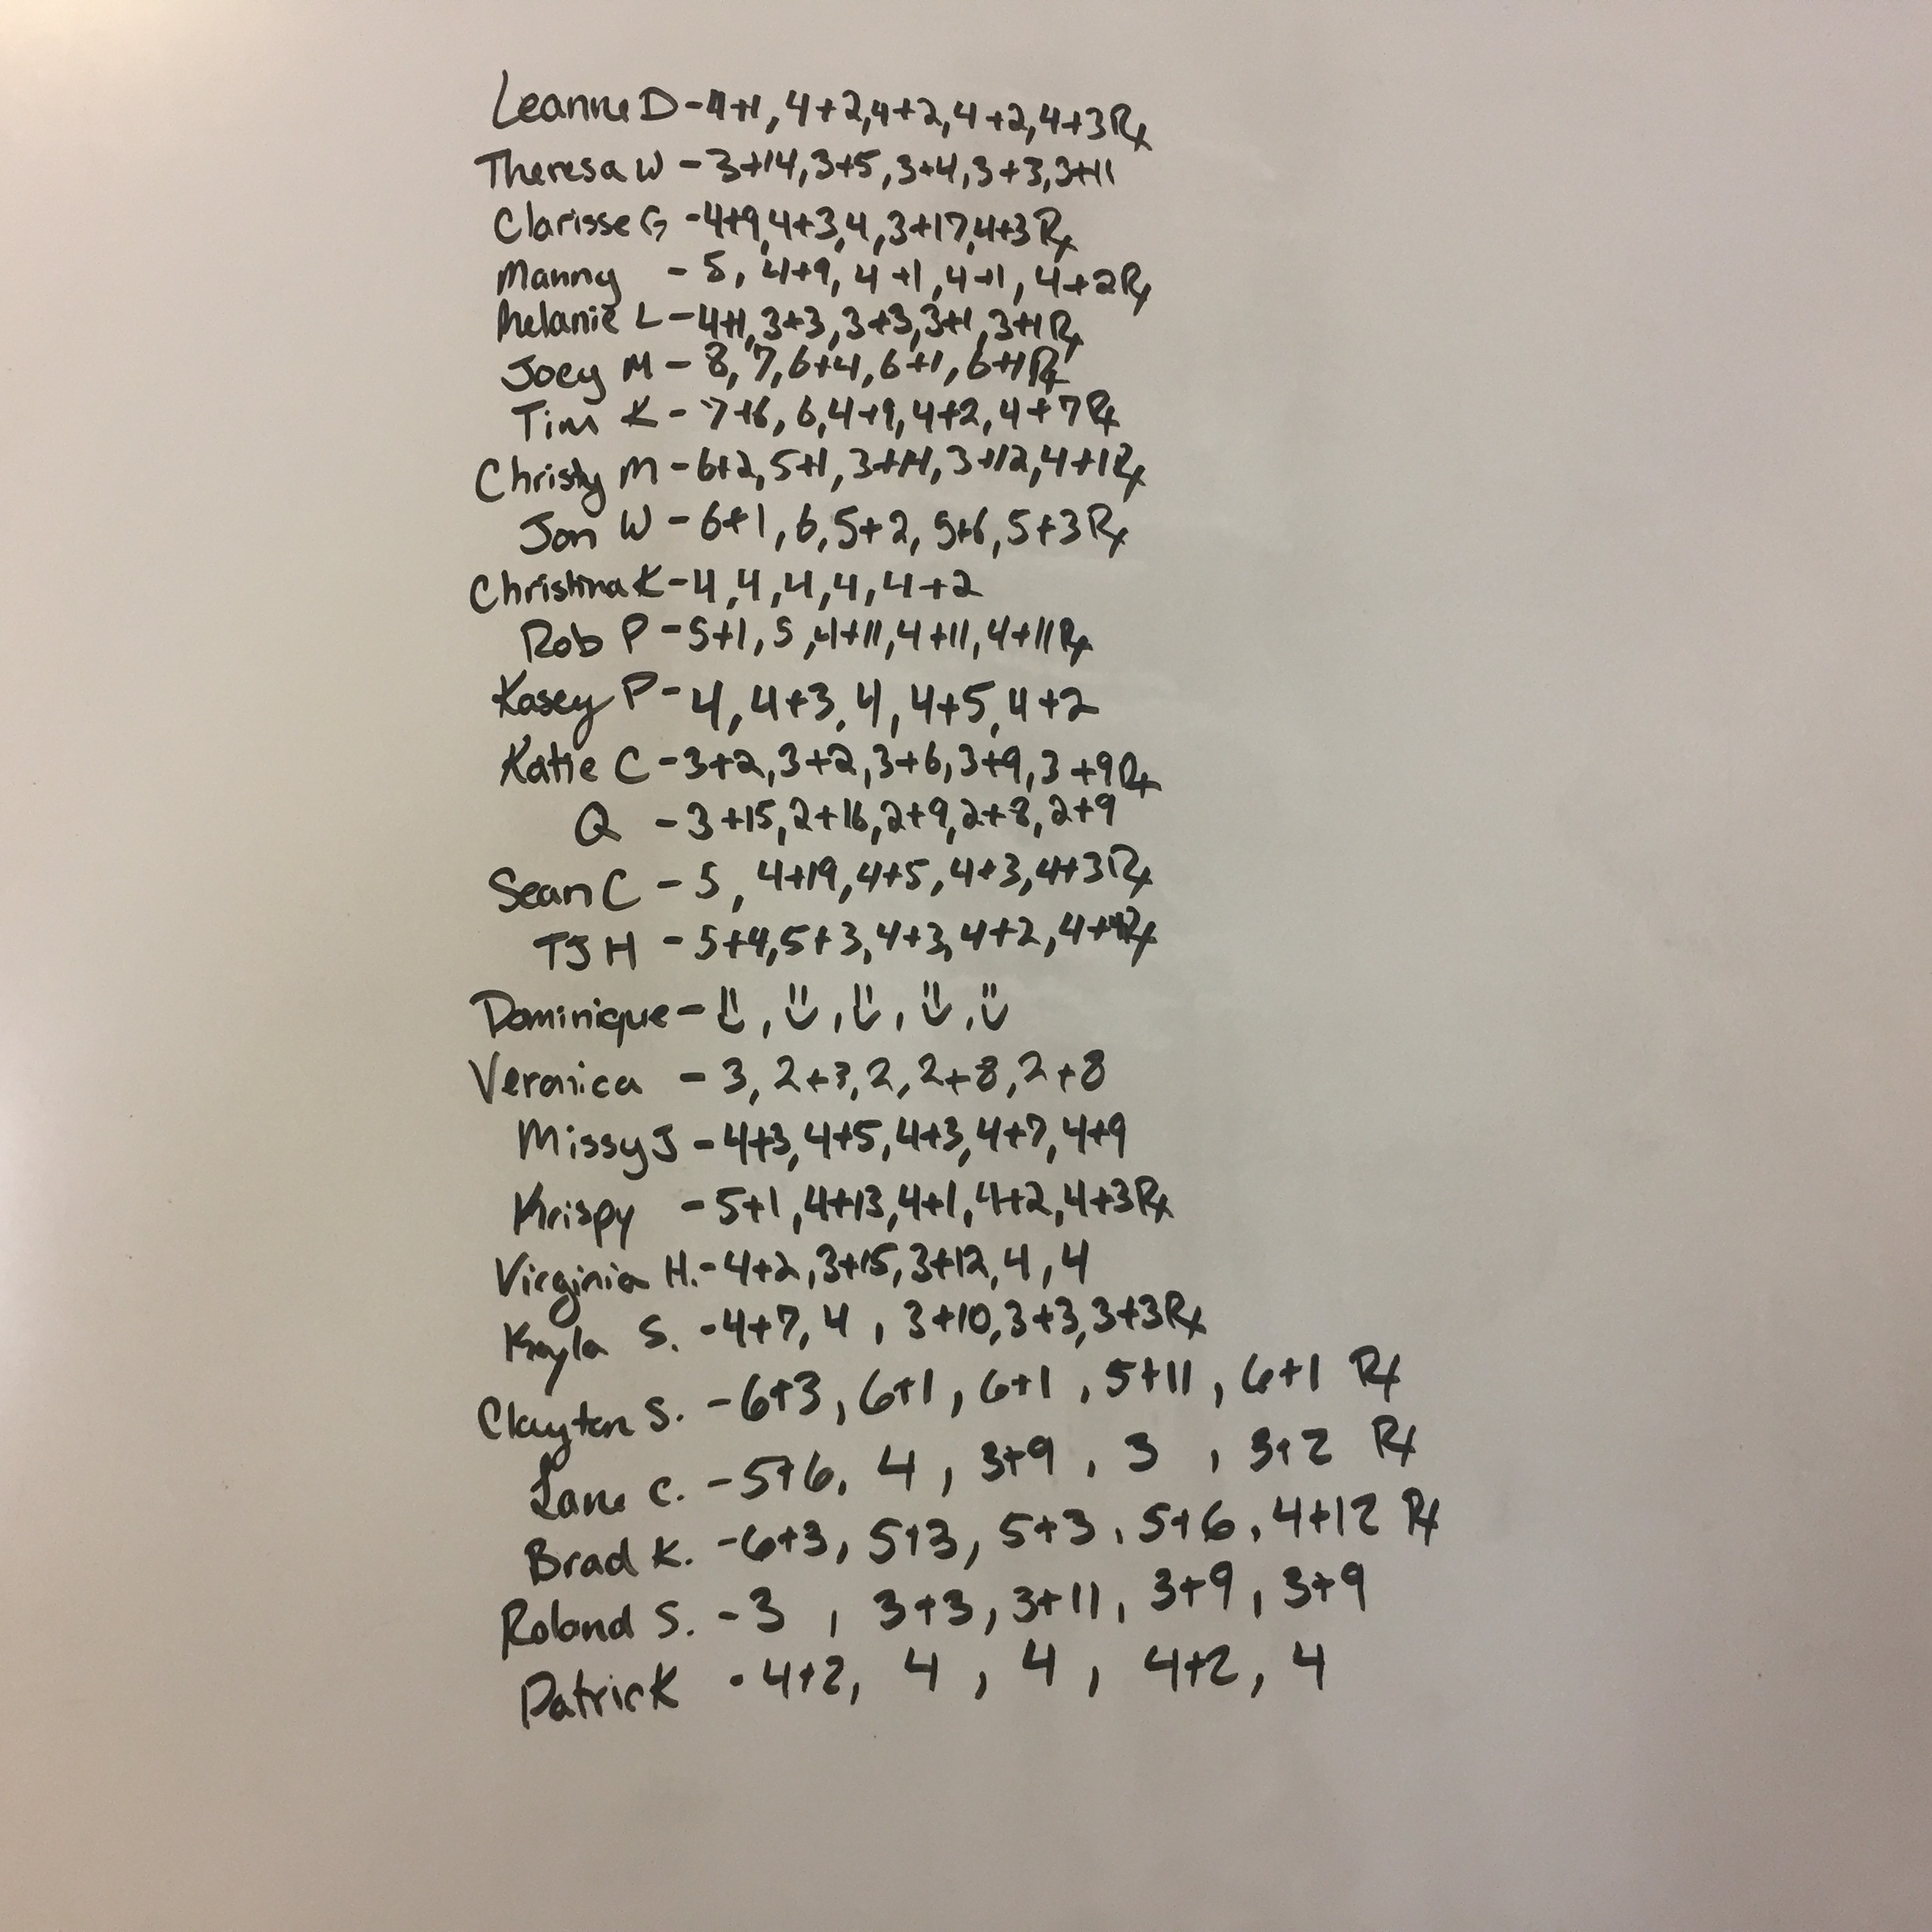 Leanne D - 4+1, 4+2, 4+2, 4+2, 4+3 Rx
Theresa W - 3+14, 3+5, 3+4, 3+3, 3+11
Clarisse G - 4+9, 4+3, 4, 3+17, 4+3 Rx
Manny - 5, 4+9, 4+1, 4+1, 4+2 Rx
Melanie L - 4+1, 3+3, 3+3, 3+1, 3+1 Rx
Joey M - 8, 7, 6+4, 6+1, 6+1 Rx
Tim K - 7+6, 6, 4+9, 4+2, 4+7 Rx
Christy M - 6+2, 5+1, 3+14, 3+12, 4+1 Rx
Jon W - 6+1, 6, 5+2, 5+6, 5+3 Rx
Christina K - 4, 4, 4, 4, 4+2
Rob P - 5+1, 5, 4+11, 4+11, 4+11 Rx
Kasey P - 4, 4+3, 4, 4+5, 4+2
Katie C - 3+2, 3+2, 3+6, 3+9, 3+9 Rx
Q - 3+15, 2+16, 2+9, 2+8, 2+9
Sean C - 5, 4+19, 4+5, 4+3, 4+3 Rx
TJ H - 5+4, 5+3, 4+3, 4+2, 4+4 Rx
Dominique - , , , ,
Veronica - 3, 2+3, 2, 2+8, 2+8
Missy J - 4+3, 4+5, 4+3, 4+7, 4+9
Krispy - 5+1, 4+13, 4+1, 4+2, 4+3 Rx
Virginia H. - 4+2, 3+15, 3+12, 4, 4
Kayla S. - 4+7, 4, 3+10, 3+3, 3+3 Rx
Clayton S. - 6+3, 6+1, 6+1, 5+11, 6+1 Rx
Lane C. - 5+6, 4, 3+9, 3, 3+2 Rx
Brad K. - 6+3, 5+3, 5+3, 5+6, 4+12 Rx
Roland S. - 3, 3+3, 3+11, 3+9, 3+9
Patrick - 4+2, 4, 4, 4+2, 4